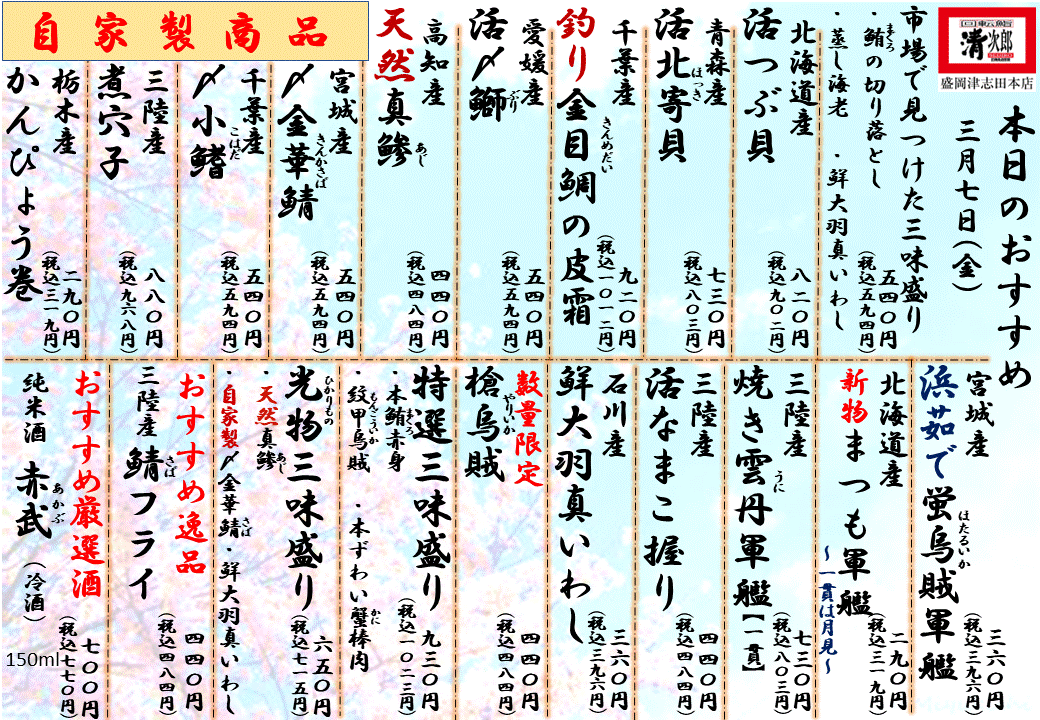 回転鮨
清次郎
盛岡津志田本店
本日のおすすめ
三月七日(金)
市場で見つけた三味盛り
・鮪の切り落とし
まぐろ
・蒸し海老 ・鮮大羽真いわし
五四〇円
(税込五九四円)
北海道産
活つぶ貝
八二〇円
(税込九〇二円)
青森産
活北寄貝
ほっき
七三〇円
(税込八〇三円)
千葉産
釣り金目鯛の皮霜
きんめだい
九二〇円
(税込一〇一二円)
愛媛産
活〆鰤
ぶり
五四〇円
(税込五九四円)
高知産
天然真鯵
あじ
四四〇円
(税込四八四円)
自家製商品
宮城産
〆金華鯖
きんかさば
五四〇円
(税込五九四円)
千葉産
〆小鰭
こはだ
五四〇円
(税込五九四円)
三陸産
煮穴子
八八〇円
(税込九六八円)
栃木産
かんぴょう巻
二九〇円
(税込三一九円)
宮城産
浜茹で蛍烏賊軍艦
ほたるいか
三六〇円
(税込三九六円)
北海道産
新物まつも軍艦
~一貫は月見~
二九〇円
(税込三一九円)
三陸産
焼き雲丹軍艦【一貫】
うに
七三〇円
(税込八〇三円)
三陸産
活なまこ握り
四四〇円
(税込四八四円)
石川産
鮮大羽真いわし
三六〇円
(税込三九六円)
数量限定
槍烏賊
やりいか
四四〇円
(税込四八四円)
特選三味盛り
・本鮪赤身
まぐろ
・紋甲烏賊 ・本ずわい蟹棒肉
もんごういか
かに
九三〇円
(税込一〇二三円)
光物三味盛り
ひかりもの
・天然真鯵
あじ
・自家製〆金華鯖・鮮大羽真いわし
さば
六五〇円
(税込七一五円)
おすすめ逸品
三陸産 鯖フライ
さば
四四〇円
(税込四八四円)
おすすめ厳選酒
純米酒 赤武 (冷酒)
あかぶ
150ml
七〇〇円
(税込七七〇円)